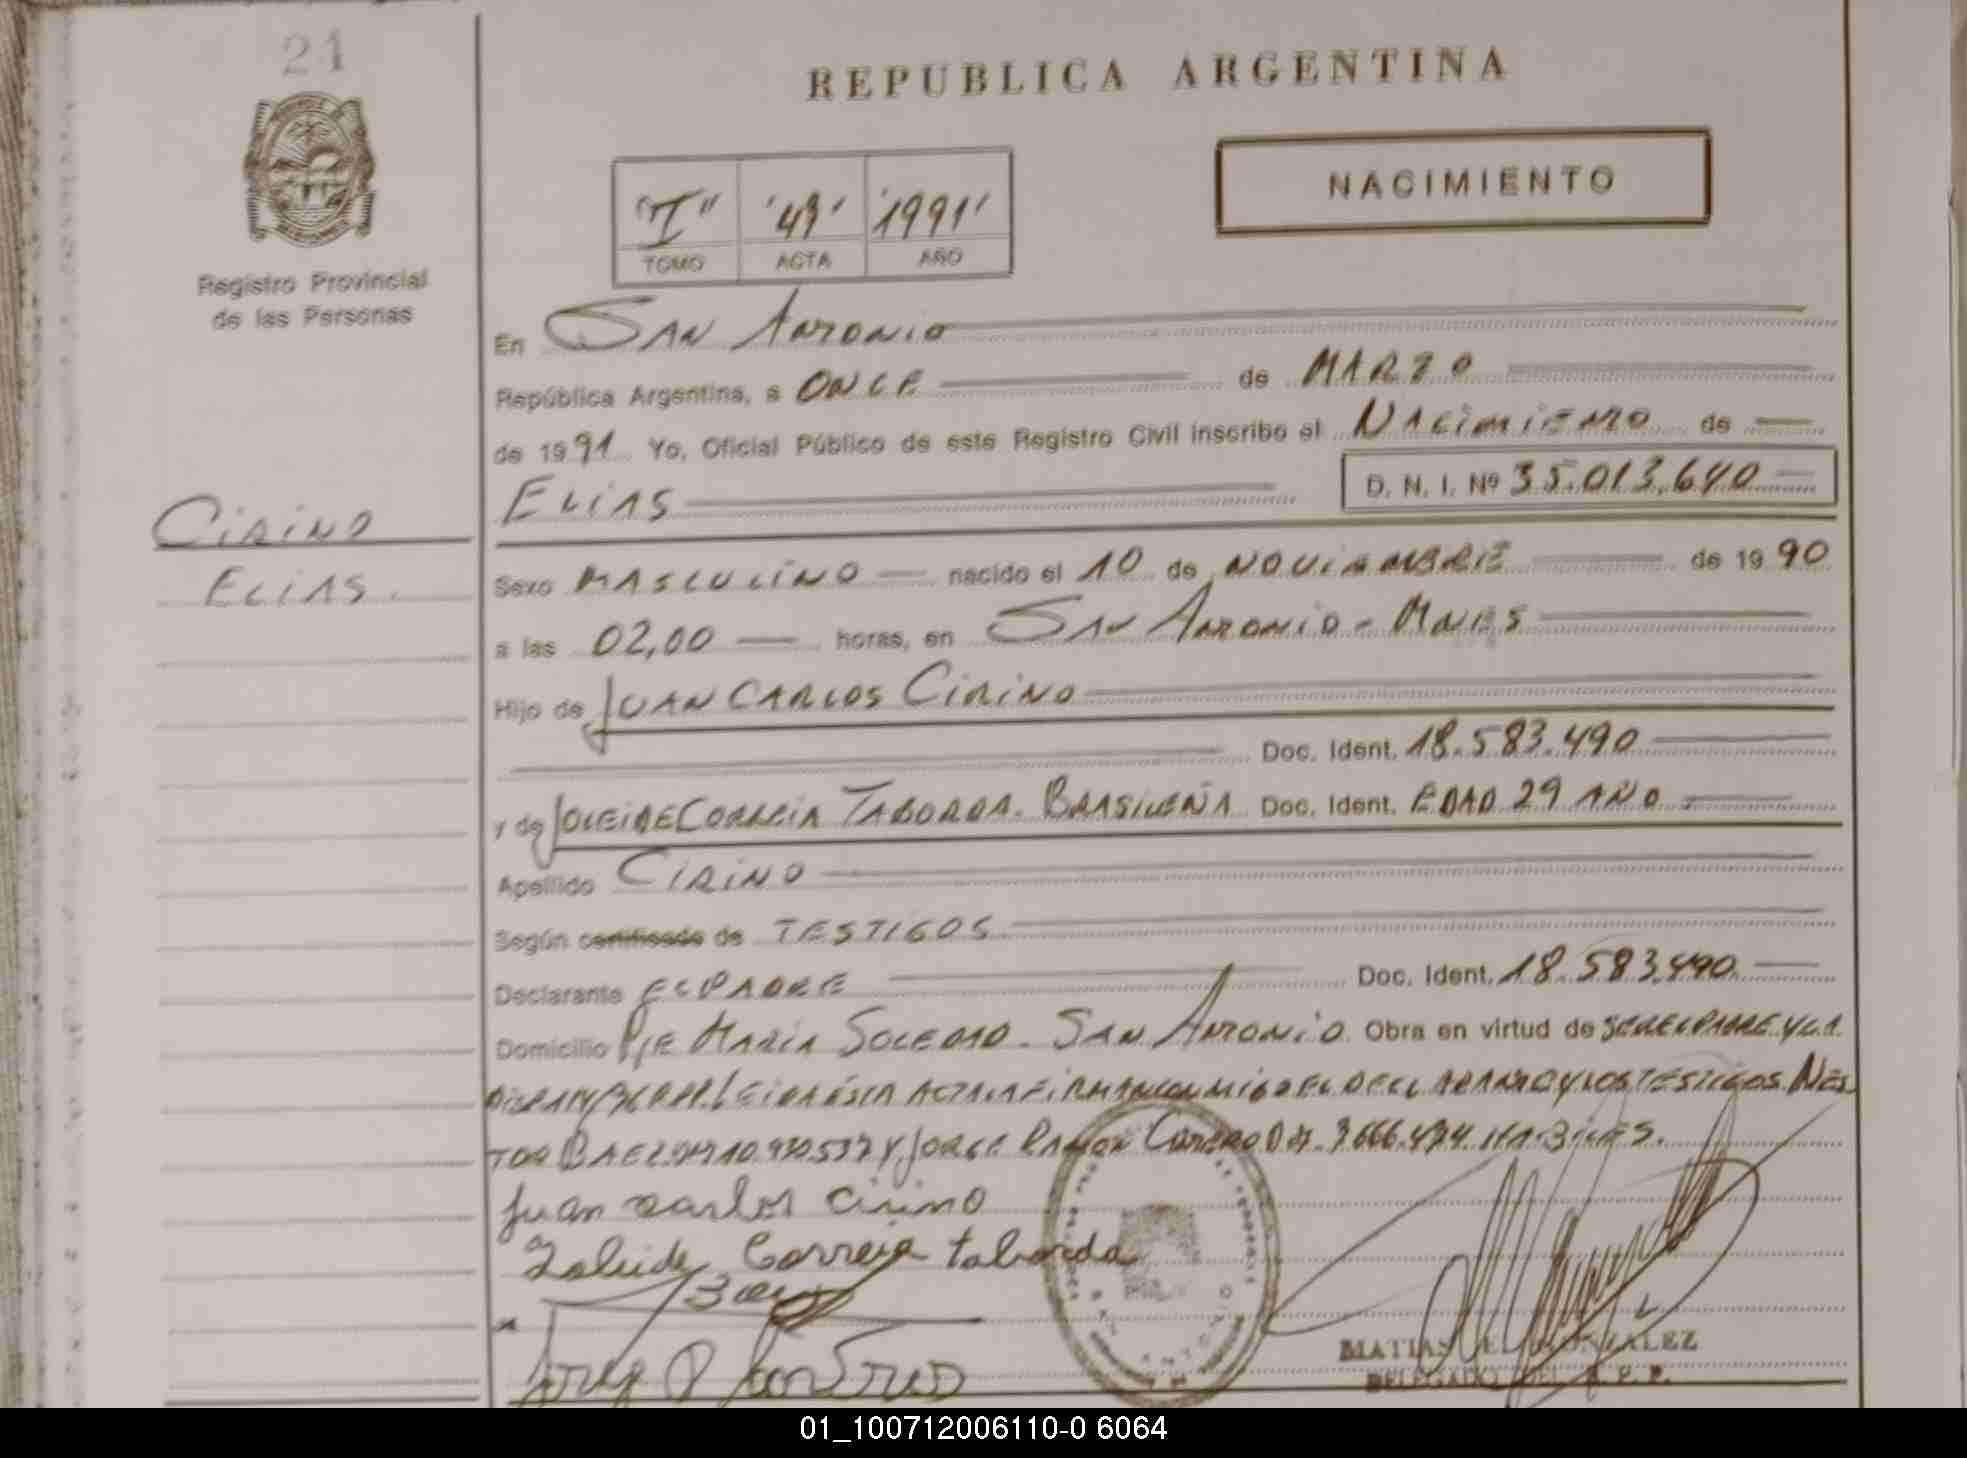 21
REPUBLICA ARGENTINA
NACIMIENTO
"I" '49' '1991'
TOMO ACTA AÑO
Registro Provincial
de las Personas
En San Antonio
República Argentina, a ONCE de MARZO
de 1991 Yo, Oficial Público de este Registro Civil inscribo el Nacimiento de
ELIAS D. N. I. Nº 35.013.640
CIRINO
ELIAS.
Sexo MASCULINO nacido el 10 de NOVIEMBRE de 1990
a las 02,00 horas, en San Antonio - Mnes
Hijo de JUAN CARLOS CIRINO
Doc. Ident. 18.583.490
y de CORREIA TABORDA. BRASILEÑA Doc. Ident. EDAD 29 AÑO
Apellido CIRINO
Según certificado de TESTIGOS
Declarante EL PADRE Doc. Ident. 18.583.490
Domicilio Pje MARIA SOLEDAD - SAN ANTONIO Obra en virtud de SER EL PADRE Y LA
LEIDA ESTA ACTA LA FIRMAN CONMIGO EL DECLARANTE Y LOS TESTIGOS. NES
TOR BAEZ Y JORGE RAMON
Juan Carlos Cirino
Correia taborda
MATIAS GONZALEZ
DELEGADO DEL R. P. P.
01_100712006110-0 6064